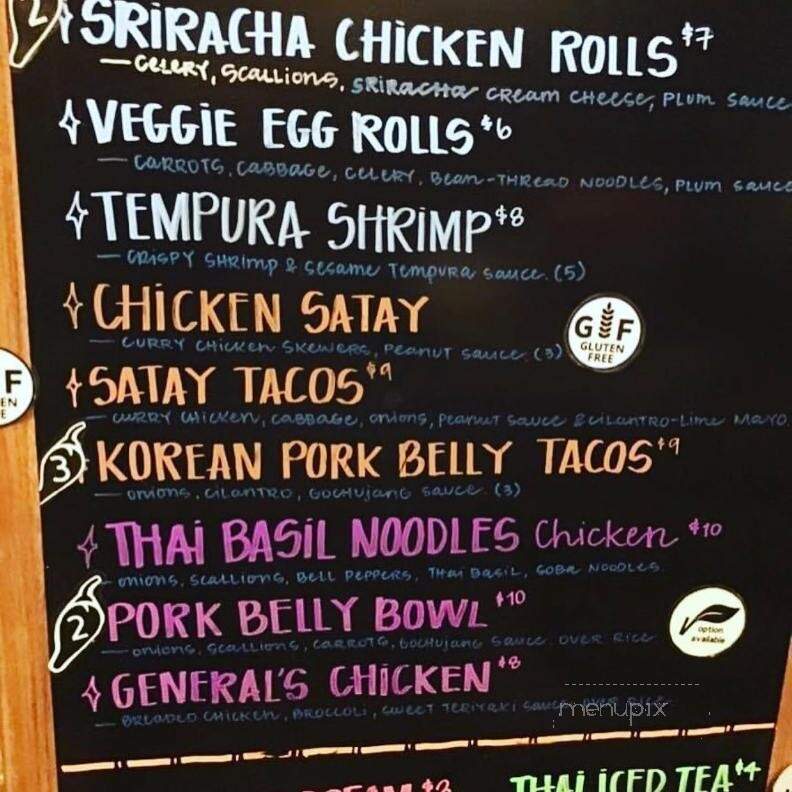 2 SRIRACHA CHICKEN ROLLS $7
— CELERY, SCALLIONS, SRIRACHA CREAM CHEESE, PLUM SAUCE
VEGGIE EGG ROLLS $6
— CARROTS, CABBAGE, CELERY, BEAN-THREAD NOODLES, PLUM SAUCE
TEMPURA SHRIMP $8
— CRISPY SHRIMP & SESAME TEMPURA SAUCE. (5)
CHICKEN SATAY
— CURRY CHICKEN SKEWERS, PEANUT SAUCE. (3)
GF
GLUTEN
FREE
F
EN
E
SATAY TACOS $9
— CURRY CHICKEN, CABBAGE, ONIONS, PEANUT SAUCE & CILANTRO-LIME MAYO.
3 KOREAN PORK BELLY TACOS $9
— ONIONS, CILANTRO, GOCHUJANG SAUCE. (3)
THAI BASIL NOODLES Chicken $10
— ONIONS, SCALLIONS, BELL PEPPERS, THAI BASIL, SOBA NOODLES
2 PORK BELLY BOWL $10
— ONIONS, SCALLIONS, CARROTS, GOCHUJANG SAUCE. OVER RICE
option
available
GENERAL'S CHICKEN $8
— BREADED CHICKEN, BROCCOLI, SWEET TERIYAKI SAUCE, OVER RICE
menupix
$3
THAI ICED TEA $4